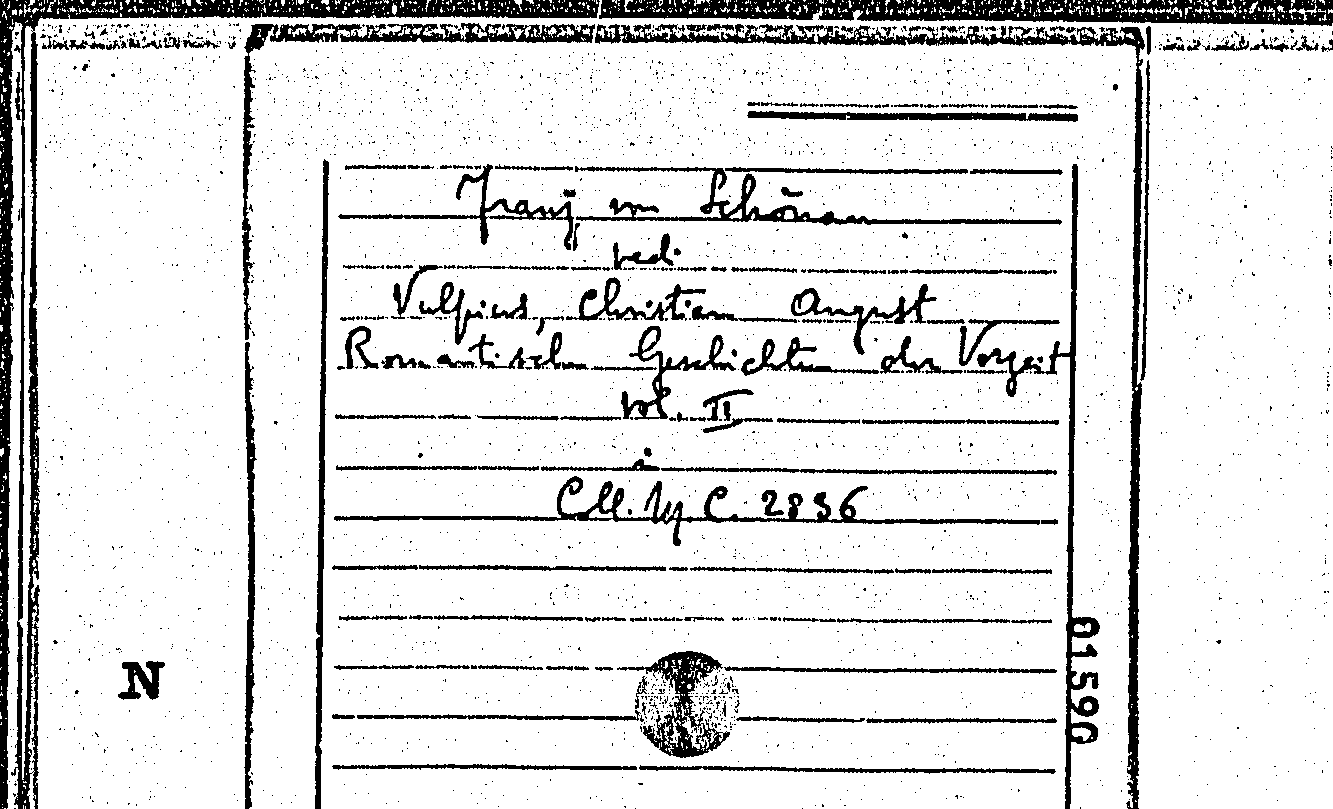 Franz von Schönau
vedi
Vulpius, Christian August
Romantischen Geschichten der Vorzeit
vol. II
Coll. C. 2836
N
01590